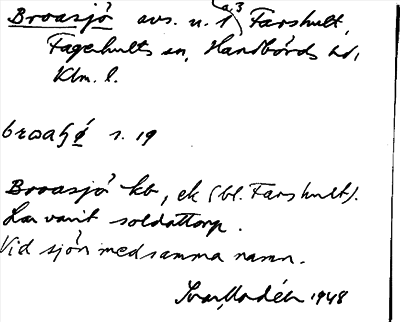 Broasjö avs. u. 1³ Farshult,
Fagerhults sn, Handbörds hd,
Klm. l.
s. 19
Broasjö kb, ek (bl. Farshult).
Har varit soldattorp.
Vid sjön med samma namn.
1948